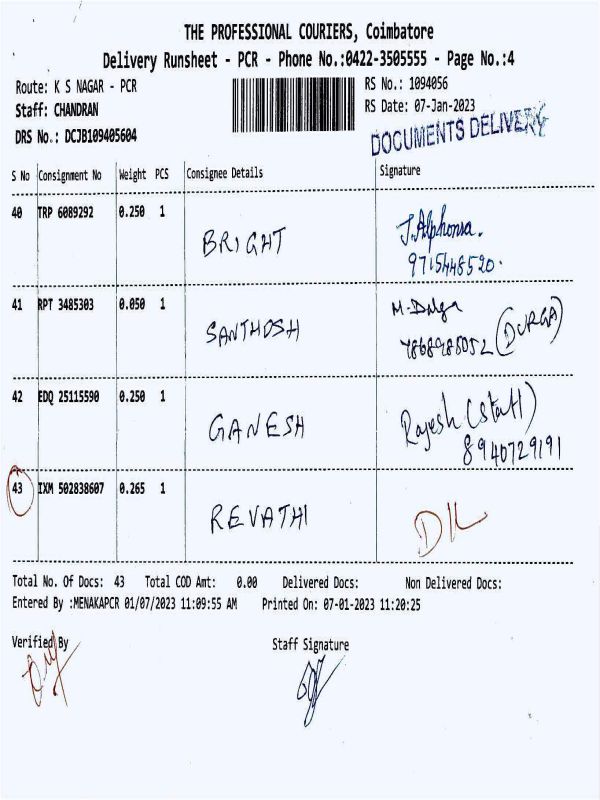 THE PROFESSIONAL COURIERS, Coimbatore
Delivery Runsheet - PCR - Phone No.:0422-3505555 - Page No.:4
Route: K S NAGAR - PCR RS No.: 1094056
Staff: CHANDRAN RS Date: 07-Jan-2023
DRS No.: DCJB109405604
DOCUMENTS DELIVERY
S No Consignment No Weight PCS Consignee Details Signature
40 TRP 6089292 0.250 1
BRIGHT J.Alphonsa.
9715448520.
41 RPT 3485303 0.050 1
SANTHOSH M-
(DURGA)
42 EDQ 25115590 0.250 1
GANESH Rajesh (Staff)
8940729191
43 IXM 502838607 0.265 1
REVATHI
Total No. Of Docs: 43 Total COD Amt: 0.00 Delivered Docs: Non Delivered Docs:
Entered By :MENAKAPCR 01/07/2023 11:09:55 AM Printed On: 07-01-2023 11:20:25
Verified By Staff Signature